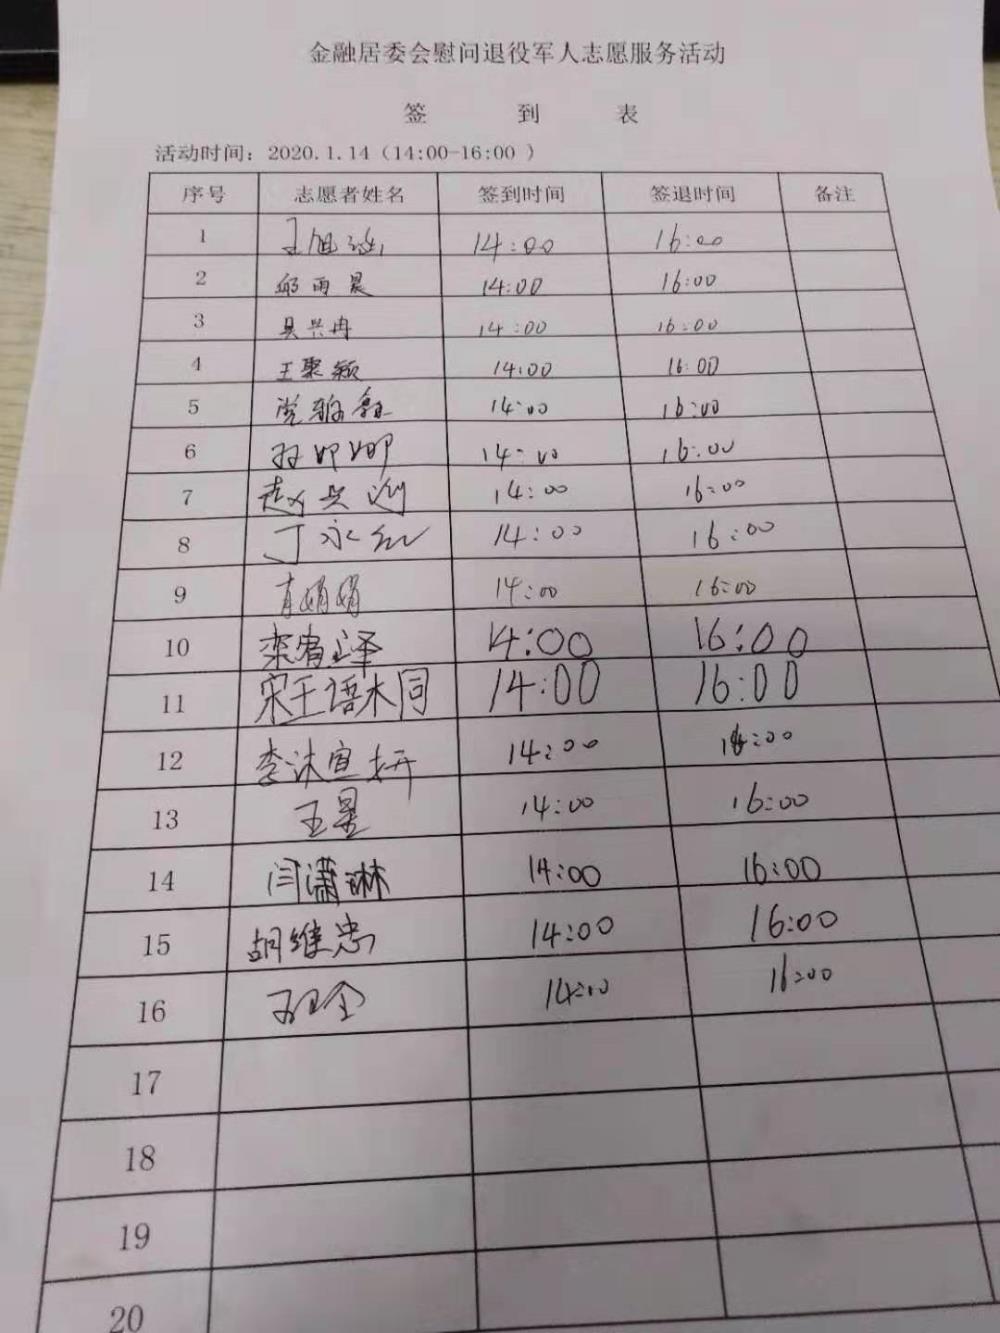 金融居委会慰问退役军人志愿服务活动
签 到 表
活动时间：2020.1.14（14:00-16:00 ）
序号 志愿者姓名 签到时间 签退时间 备注
1 王旭 14:00 16:00
2 邱雨晨 14:00 16:00
3 吴兴冉 14:00 16:00
4 王聚颖 14:00 16:00
5 党 14:00 16:00
6 14:00 16:00
7 赵兴 14:00 16:00
8 丁永红 14:00 16:00
9 肖娟娟 14:00 16:00
10 栾宥泽 14:00 16:00
11 宋王语木同 14:00 16:00
12 李沐宣妍 14:00 16:00
13 王景 14:00 16:00
14 闫潇琳 14:00 16:00
15 胡维忠 14:00 16:00
16 14:00 16:00
17
18
19
20